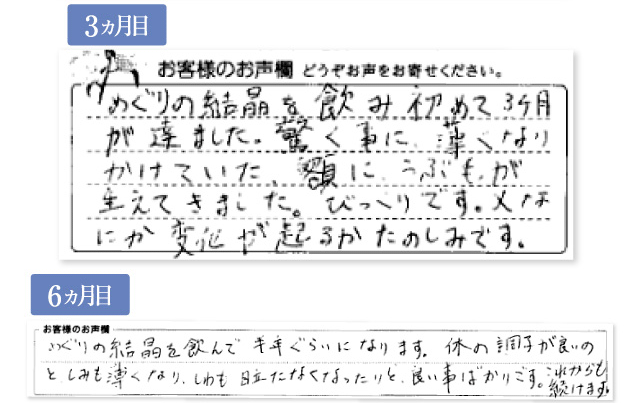 3ヵ月目
お客様のお声欄 どうぞお声をお寄せください。
めぐりの結晶を飲み初めて3ヶ月
が達ました。驚く事に、薄くなり
かけていた、額に、うぶもが
生えてきました。びっくりです。又な
にか変化が起るかたのしみです。
6ヵ月目
お客様のお声欄
めぐりの結晶を飲んで半年ぐらいになります。体の調子が良いの
と、しみも薄くなり、しわも目立たなくなったりと、良い事ばかりです。これからも
続けます。